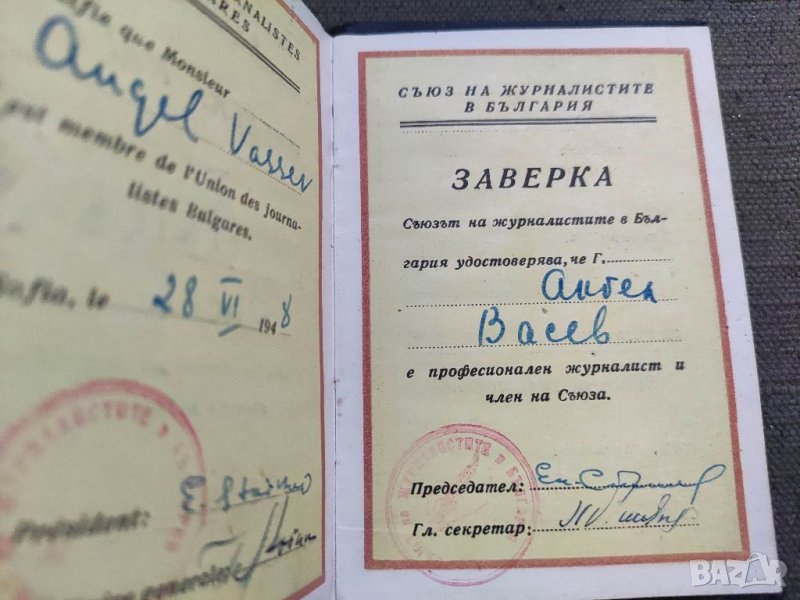 NALISTES
ARES
fie que Monsieur
Angel
Vassev
est membre de l'Union des journa-
listes Bulgares.
Sofia, le 28 VI 1948
Président:
СЪЮЗ НА ЖУРНАЛИСТИТЕ
В БЪЛГАРИЯ
ЗАВЕРКА
Съюзът на журналистите в Бъл-
гария удостоверява, че Г.
Ангел
Васев
е професионален журналист и
член на Съюза.
Председател:
Гл. секретар:
BAZAR